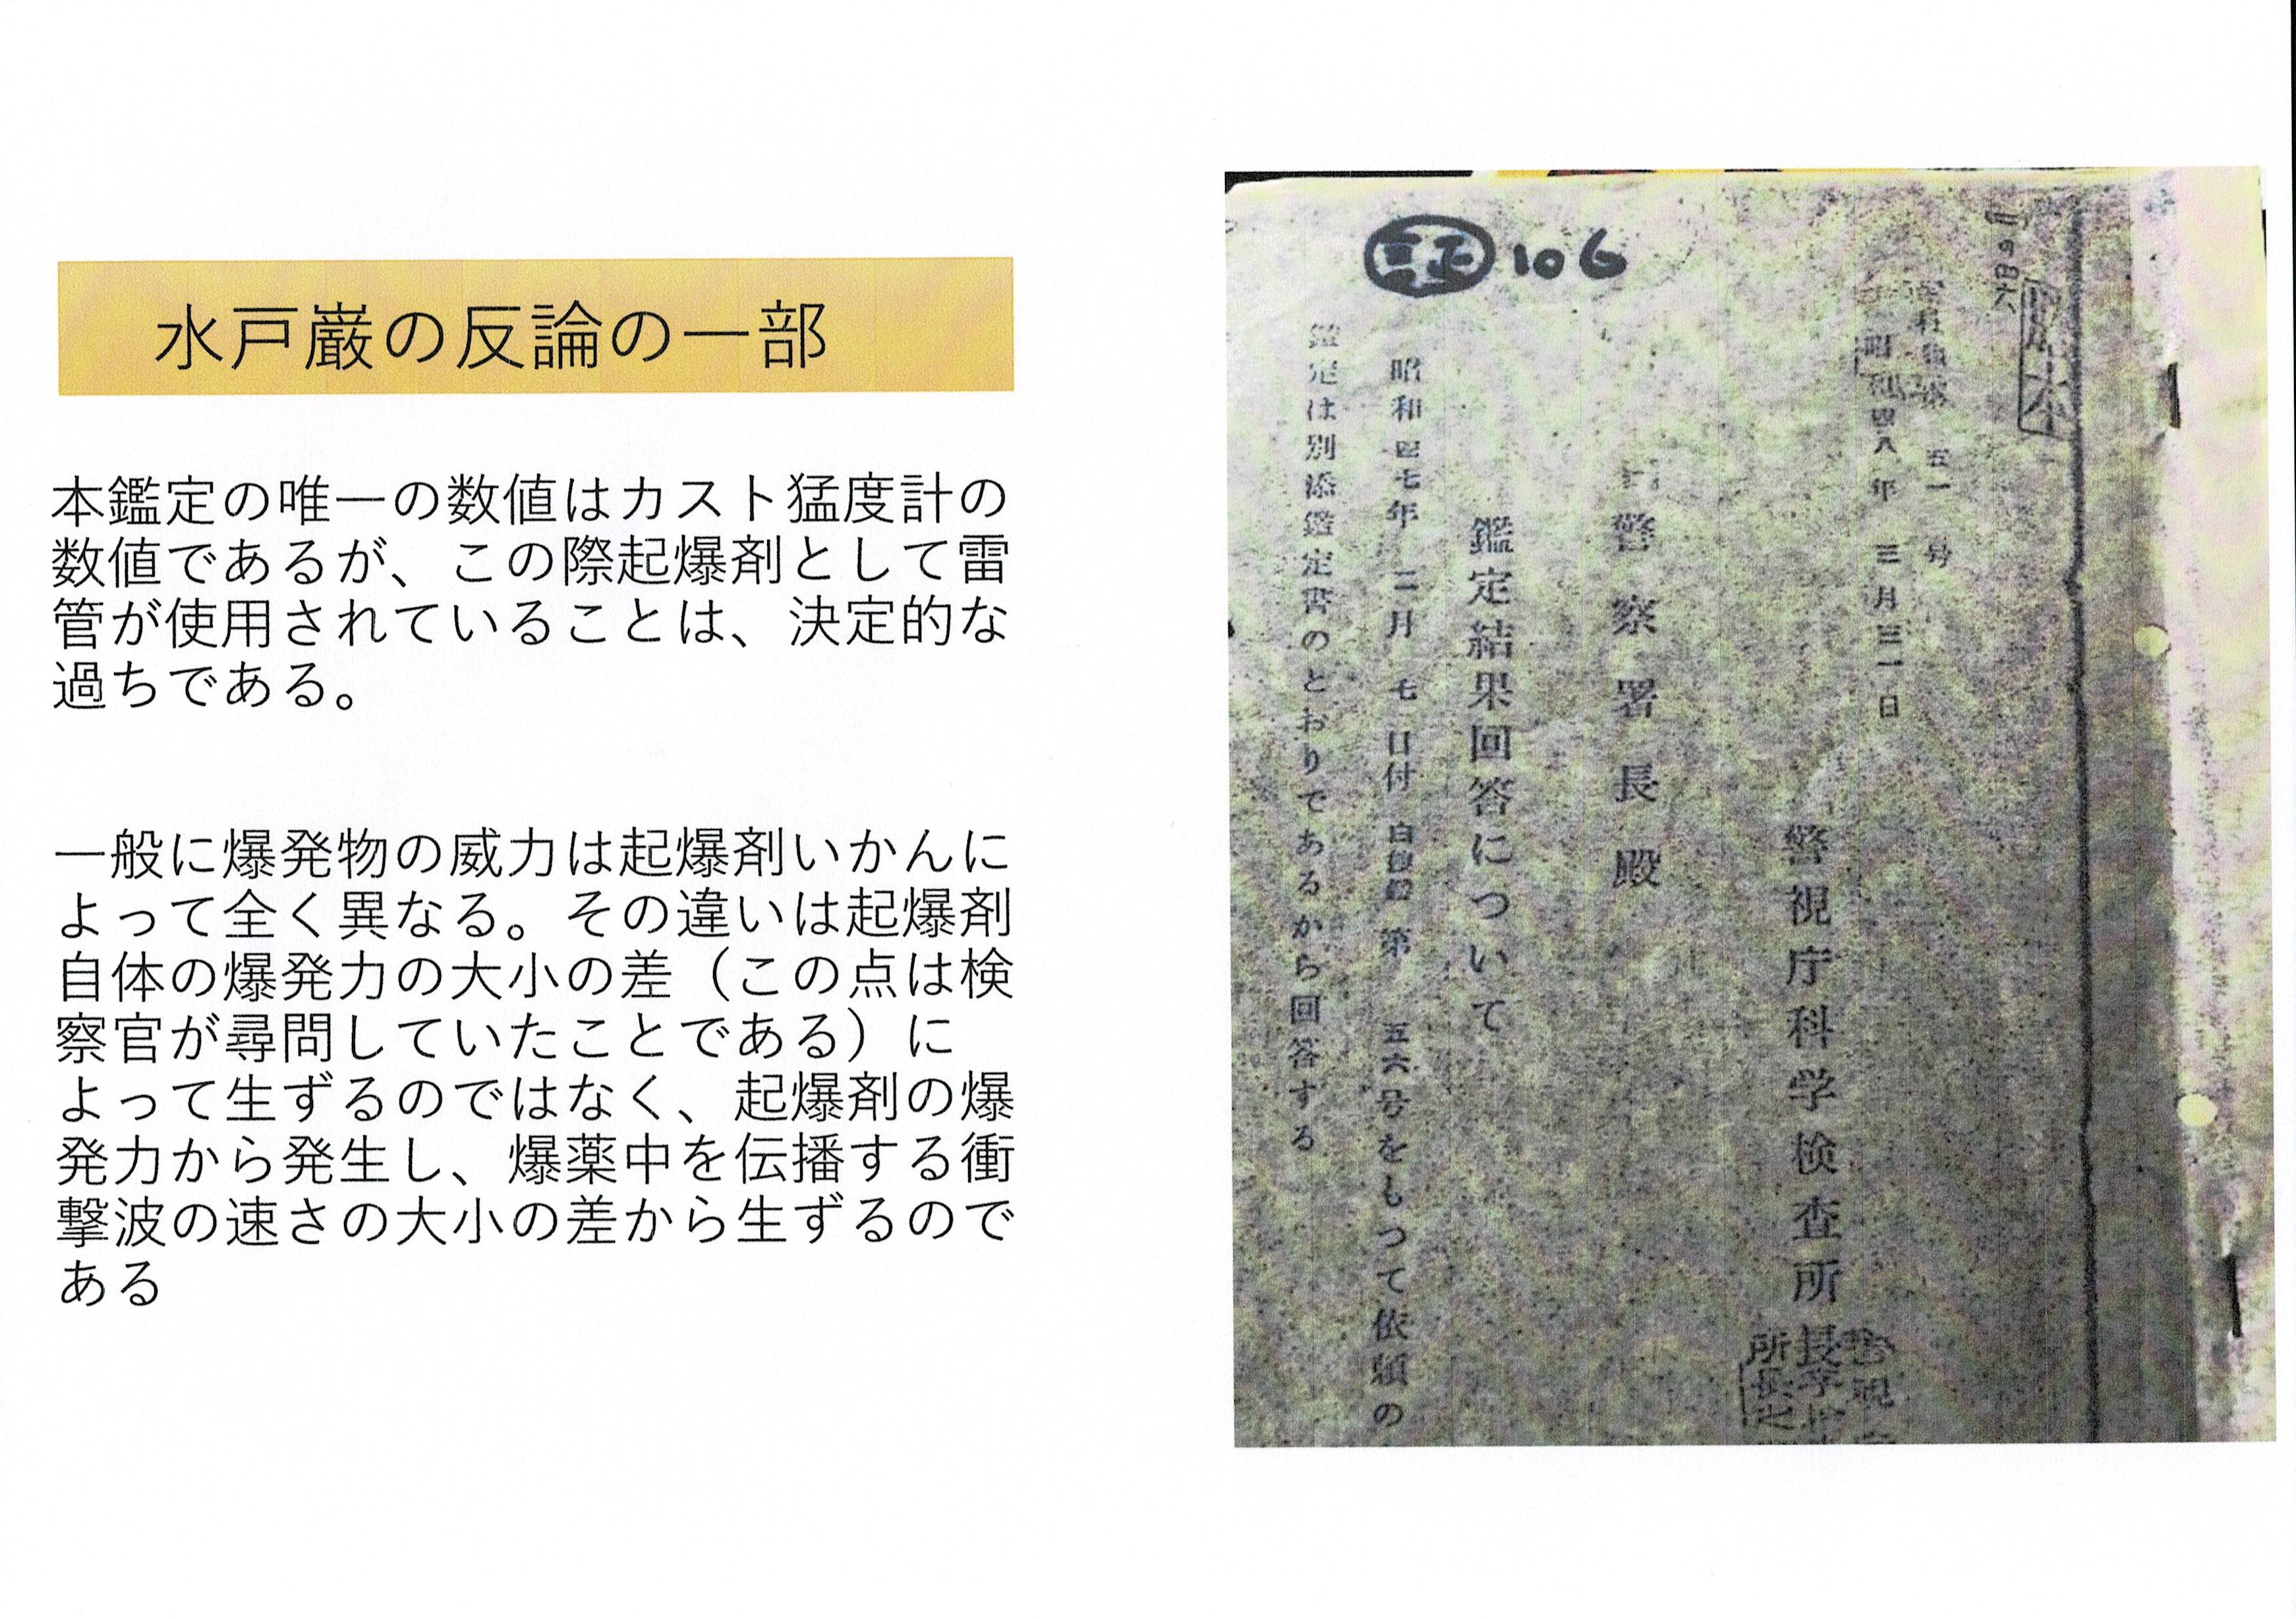 水戸巌の反論の一部
本鑑定の唯一の数値はカスト猛度計の
数値であるが、この際起爆剤として雷
管が使用されていることは、決定的な
過ちである。
一般に爆発物の威力は起爆剤いかんに
よって全く異なる。その違いは起爆剤
自体の爆発力の大小の差（この点は検
察官が尋問していたことである）に
よって生ずるのではなく、起爆剤の爆
発力から発生し、爆薬中を伝播する衝
撃波の速さの大小の差から生ずるので
ある
証 106
謄本
五一 号
昭和四八年 三月三一日
警視庁科学検査所長
警察署長殿
鑑定結果回答について
昭和四七年 二月 七日付 第 五六号をもつて依頼の
鑑定は別添鑑定書のとおりであるから回答する